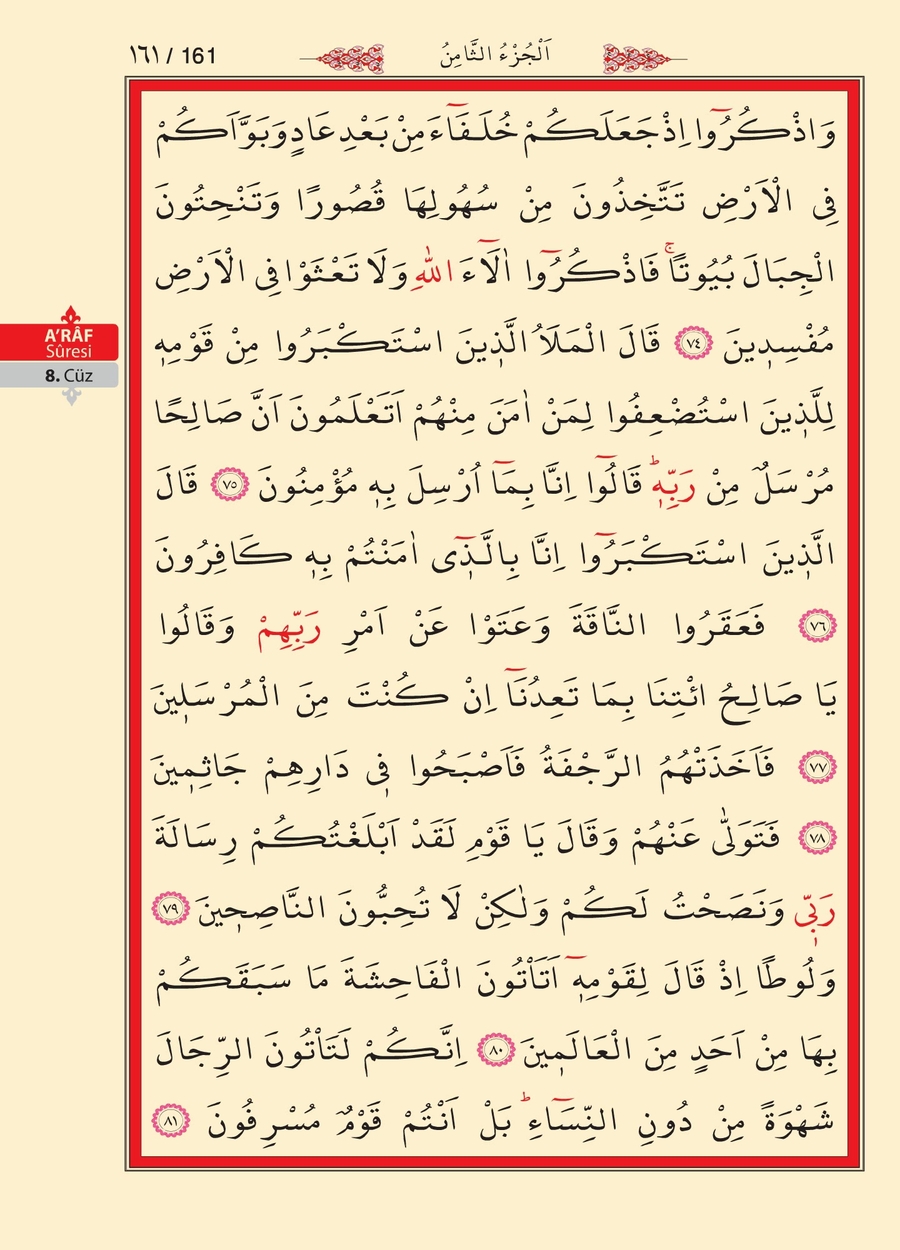 ١٦١ / 161
اَلْجُزْءُ الثَّامِنُ
وَاذْكُرُٓوا اِذْ جَعَلَكُمْ خُلَفَٓاءَ مِنْ بَعْدِ عَادٍ وَبَوَّاَكُمْ
فِي الْاَرْضِ تَتَّخِذُونَ مِنْ سُهُولِهَا قُصُورًا وَتَنْحِتُونَ
الْجِبَالَ بُيُوتًاۚ فَاذْكُرُٓوا اٰلَٓاءَ اللّٰهِ وَلَا تَعْثَوْا فِي الْاَرْضِ
مُفْسِدٖينَ ﴿٧٤﴾ قَالَ الْمَلَاُ الَّذٖينَ اسْتَكْبَرُوا مِنْ قَوْمِهٖ
لِلَّذٖينَ اسْتُضْعِفُوا لِمَنْ اٰمَنَ مِنْهُمْ اَتَعْلَمُونَ اَنَّ صَالِحًا
مُرْسَلٌ مِنْ رَبِّهٖؕ قَالُٓوا اِنَّا بِمَٓا اُرْسِلَ بِهٖ مُؤْمِنُونَ ﴿٧٥﴾ قَالَ
الَّذٖينَ اسْتَكْبَرُٓوا اِنَّا بِالَّذٖٓى اٰمَنْتُمْ بِهٖ كَافِرُونَ
﴿٧٦﴾ فَعَقَرُوا النَّاقَةَ وَعَتَوْا عَنْ اَمْرِ رَبِّهِمْ وَقَالُوا
يَا صَالِحُ ائْتِنَا بِمَا تَعِدُنَٓا اِنْ كُنْتَ مِنَ الْمُرْسَلٖينَ
﴿٧٧﴾ فَاَخَذَتْهُمُ الرَّجْفَةُ فَاَصْبَحُوا فٖى دَارِهِمْ جَاثِمٖينَ
﴿٧٨﴾ فَتَوَلّٰى عَنْهُمْ وَقَالَ يَا قَوْمِ لَقَدْ اَبْلَغْتُكُمْ رِسَالَةَ
رَبّٖى وَنَصَحْتُ لَكُمْ وَلٰكِنْ لَا تُحِبُّونَ النَّاصِحٖينَ ﴿٧٩﴾
وَلُوطًا اِذْ قَالَ لِقَوْمِهٖٓ اَتَاْتُونَ الْفَاحِشَةَ مَا سَبَقَكُمْ
بِهَا مِنْ اَحَدٍ مِنَ الْعَالَمٖينَ ﴿٨٠﴾ اِنَّكُمْ لَتَاْتُونَ الرِّجَالَ
شَهْوَةً مِنْ دُونِ النِّسَٓاءِؕ بَلْ اَنْتُمْ قَوْمٌ مُسْرِفُونَ ﴿٨١﴾
A'RÂF
Sûresi
8. Cüz